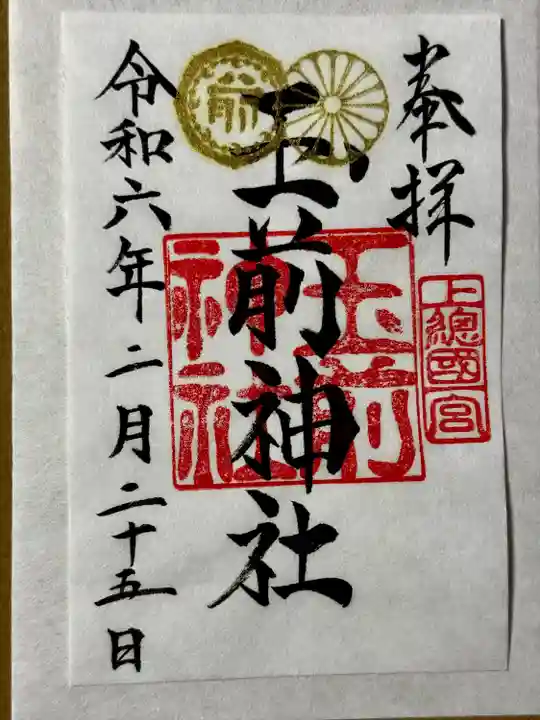 奉拝
上總國宮
玉前神社
玉前
神社
前
令和六年二月二十五日